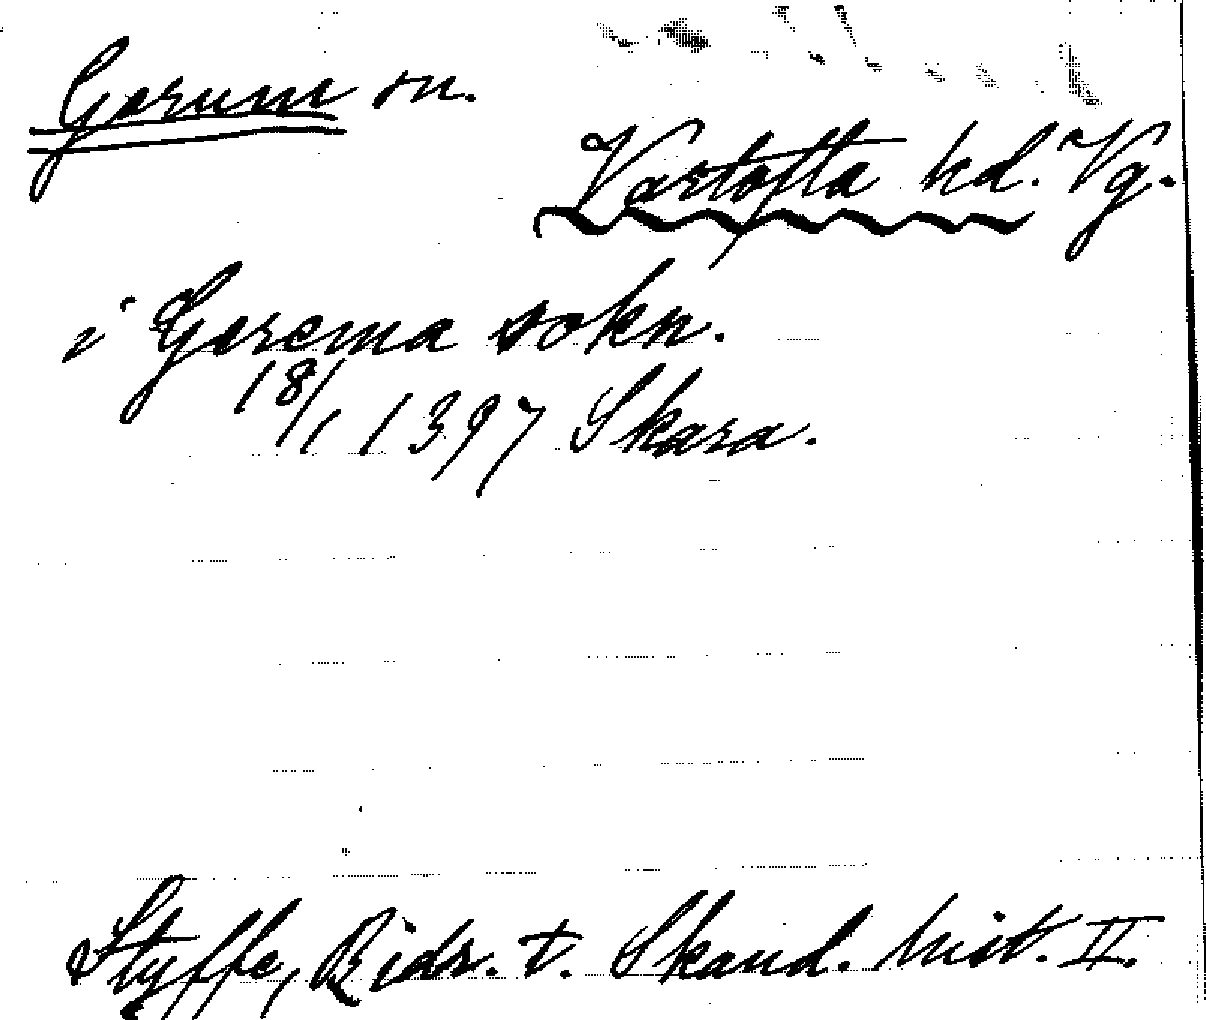 Gørum sn.
Vartofta hd. Vg.
i Gørema sokn.
18/1 1397 Skara.
Styffe, Bidr. t. Skand. hist. II.